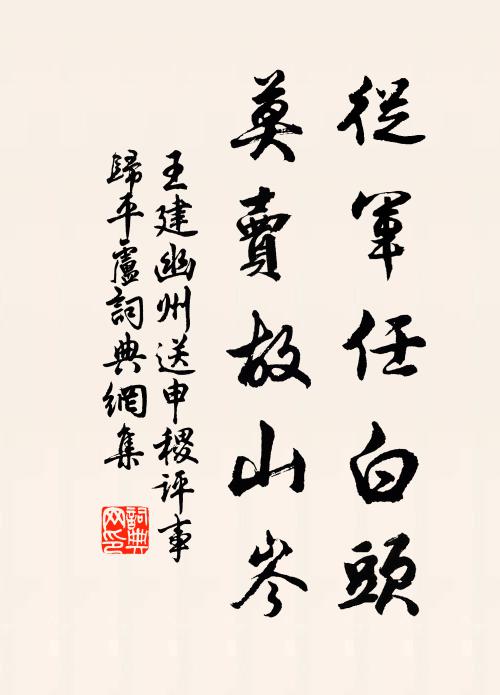 從軍任白頭
莫賣故山岑
王建幽州送申稷評事
歸平盧詞典網集
詞典
网印